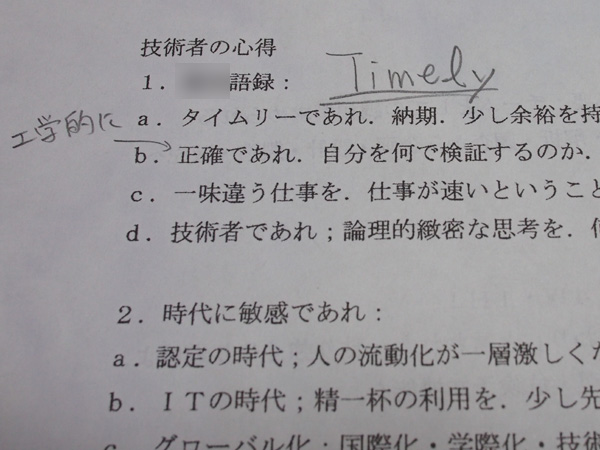 技術者の心得
1． 語録： Timely
工学的に
a．タイムリーであれ．納期．少し余裕を持
b．正確であれ．自分を何で検証するのか．
c．一味違う仕事を．仕事が速いということ
d．技術者であれ；論理的緻密な思考を．
2．時代に敏感であれ：
a．認定の時代；人の流動化が一層激しく
b．ＩＴの時代；精一杯の利用を．少し先
c．グローバル化；国際化・学際化・技